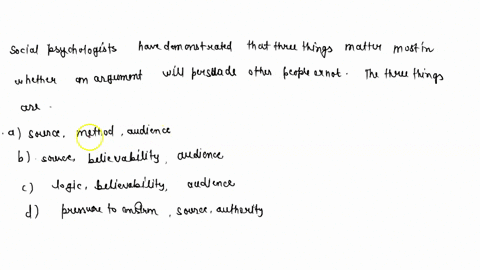 Social psychologists have demonstrated that three things matter most in
whether an argument will persuade other people or not. The three things
are.
a) source, method, audience
b) source, believability, audience
c) logic, believability, audience
d) pressure to conform, source, authority